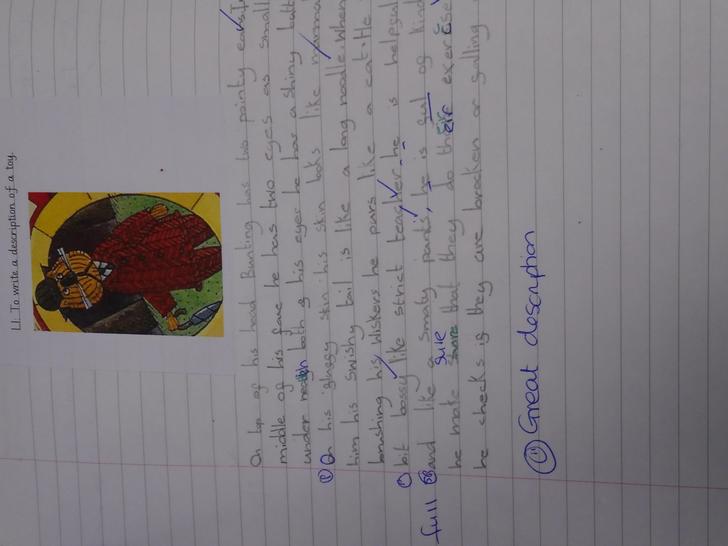 LI. To write a description of a toy.
On top of his head Bunting has two pointy ears In
middle of his face he has two eyes as small
under both of his eyes he has a shiny butt
On his skin his skin looks like
him his swishy tail is like a long noodle. When
brushing his wiskers he purs like a cat. He
bit bossy like strict teacher he is helpful
and like a smaty pants, he is ful of kind
full
he make sure that they do their exersise
sure
he checks is they are brocken or falling
Great description